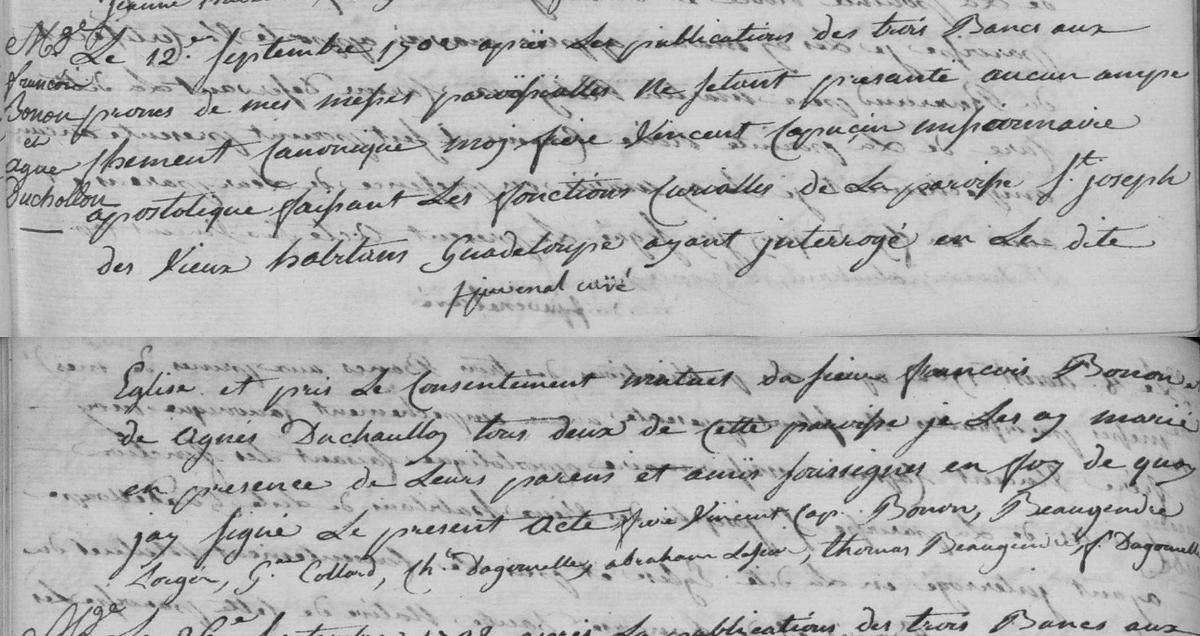 Mge
françois
Bonon
et
agnes
Duchollou
Le 12.er septembre après Les publications des trois Bancs aux
prones de mes messes paroissialles Ne setant presante aucun ampe
chement Canonique moy frere Vincent Capucin missionnaire
apostolique faisant Les fonctions Curialles de La paroisse St. joseph
des Vieux habitans Guadeloupe ayant interrogé en La dite
f juvenal curé
Eglise et pris Le Consentement mutuel du sieur françois Bonon et
de Agnés Duchaulloy tous deux de Cette paroisse je Les ay marié
en presence de Leurs parens et amis soussignes en foy de quoy
jay signé Le present Acte frere Vincent Cap. Bonon, Beaugendre
Lorgér, G.me Collard, Ch. Dagornelle, abraham, thomas Beaugendre, f. Dagornelle
Mge
Le septembre après La publications des trois Bancs aux